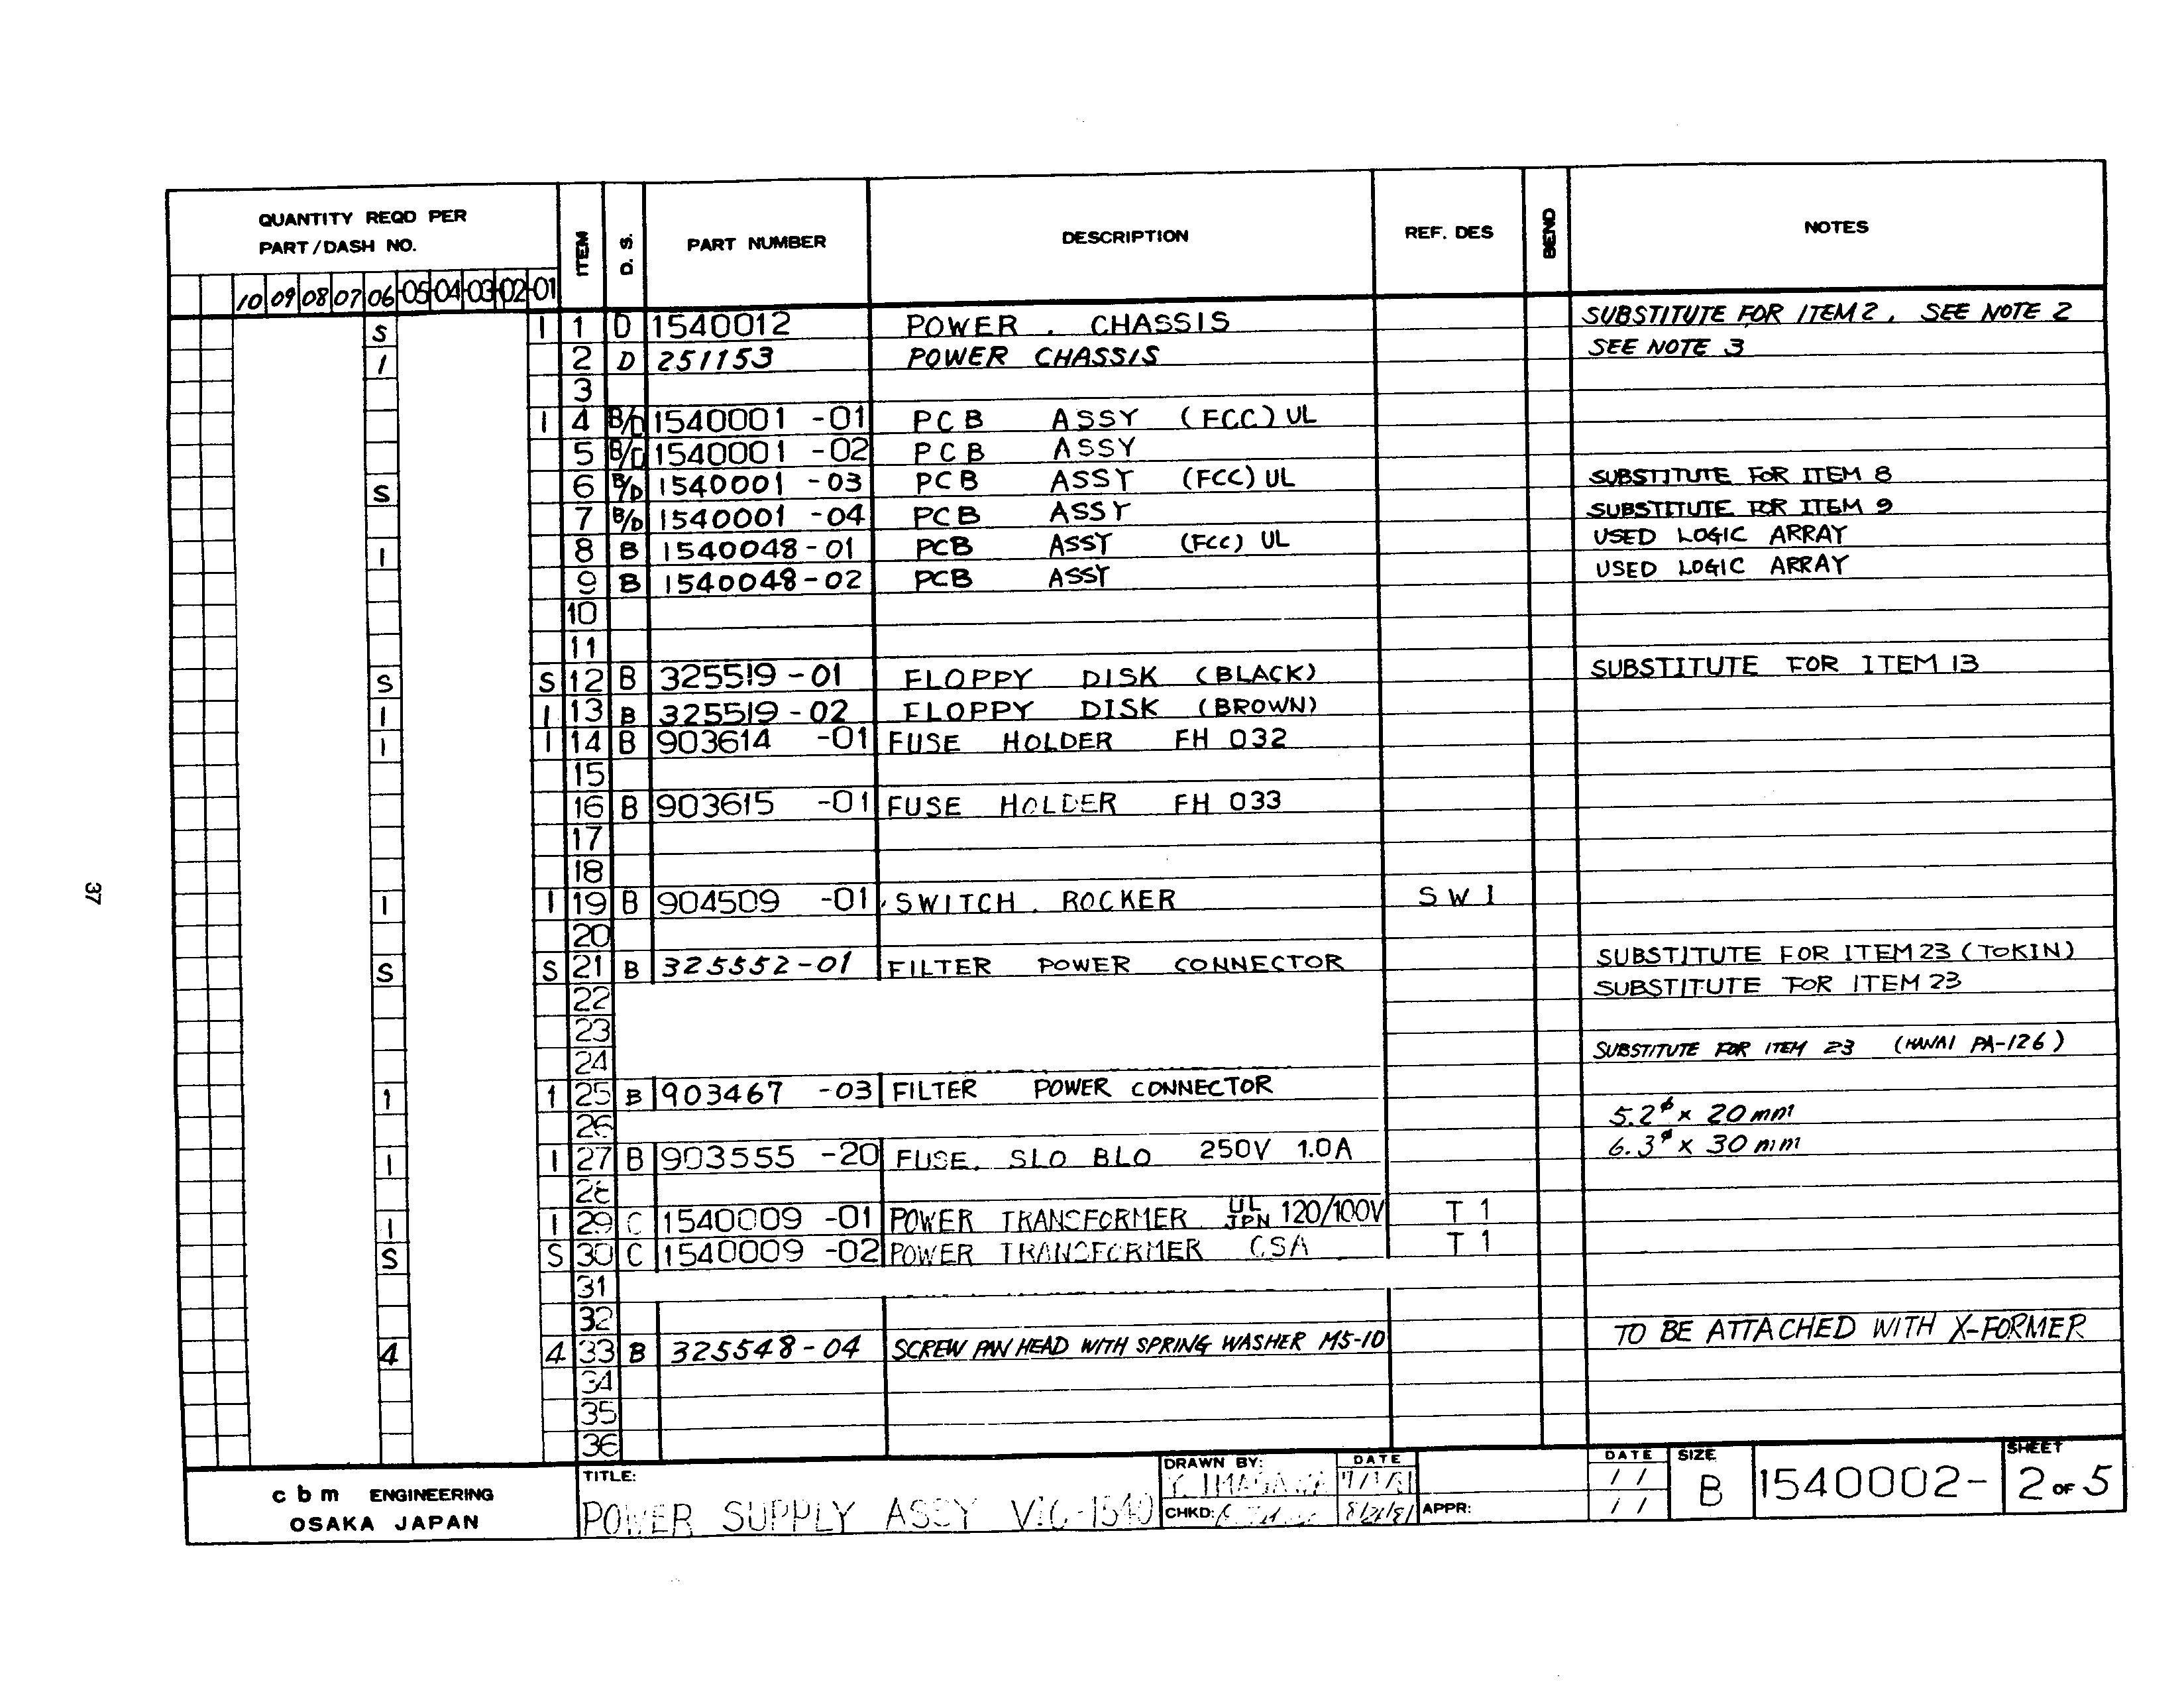 QUANTITY REQD PER
PART/DASH NO.
10 09 08 07 06 -05 -04 -03 -02 -01
ITEM
D. S.
PART NUMBER
DESCRIPTION
REF. DES
BEND
NOTES
S 1 1 D 1540012 POWER . CHASSIS SUBSTITUTE FOR ITEM 2, SEE NOTE 2
1 2 D 251153 POWER CHASSIS SEE NOTE 3
3
1 4 B/D 1540001 -01 PCB ASSY (FCC) UL
5 B/D 1540001 -02 PCB ASSY
S 6 B/D 1540001 -03 PCB ASSY (FCC) UL SUBSTITUTE FOR ITEM 8
7 B/D 1540001 -04 PCB ASSY SUBSTITUTE FOR ITEM 9
1 8 B 1540048-01 PCB ASSY (FCC) UL USED LOGIC ARRAY
9 B 1540048-02 PCB ASSY USED LOGIC ARRAY
10
11
S S 12 B 325519-01 FLOPPY DISK (BLACK) SUBSTITUTE FOR ITEM 13
1 1 13 B 325519-02 FLOPPY DISK (BROWN)
1 1 14 B 903614 -01 FUSE HOLDER FH 032
15
16 B 903615 -01 FUSE HOLDER FH 033
17
18
1 1 19 B 904509 -01 SWITCH . ROCKER SW 1
20
S S 21 B 325552-01 FILTER POWER CONNECTOR SUBSTITUTE FOR ITEM 23 (TOKIN)
22 SUBSTITUTE FOR ITEM 23
23
24 SUBSTITUTE FOR ITEM 23 (HANAI PA-126)
1 1 25 B 903467 -03 FILTER POWER CONNECTOR
26 5.2ϕ x 20 mm
1 1 27 B 903555 -20 FUSE. SLO BLO 250V 1.0A 6.3ϕ x 30 mm
28
1 1 29 C 1540009 -01 POWER TRANSFORMER UL JPN 120/100V T 1
S S 30 C 1540009 -02 POWER TRANSFORMER CSA T 1
31
32
4 4 33 B 325548-04 SCREW PAN HEAD WITH SPRING WASHER M5-10 TO BE ATTACHED WITH X-FORMER
34
35
36
cbm ENGINEERING
OSAKA JAPAN
TITLE:
POWER SUPPLY ASSY VIC-1540
DRAWN BY: DATE
Y. IMAGAWA 7/1/81
CHKD: APPR:
DATE
/ /
/ /
SIZE
B
1540002-
SHEET
2 OF 5
37